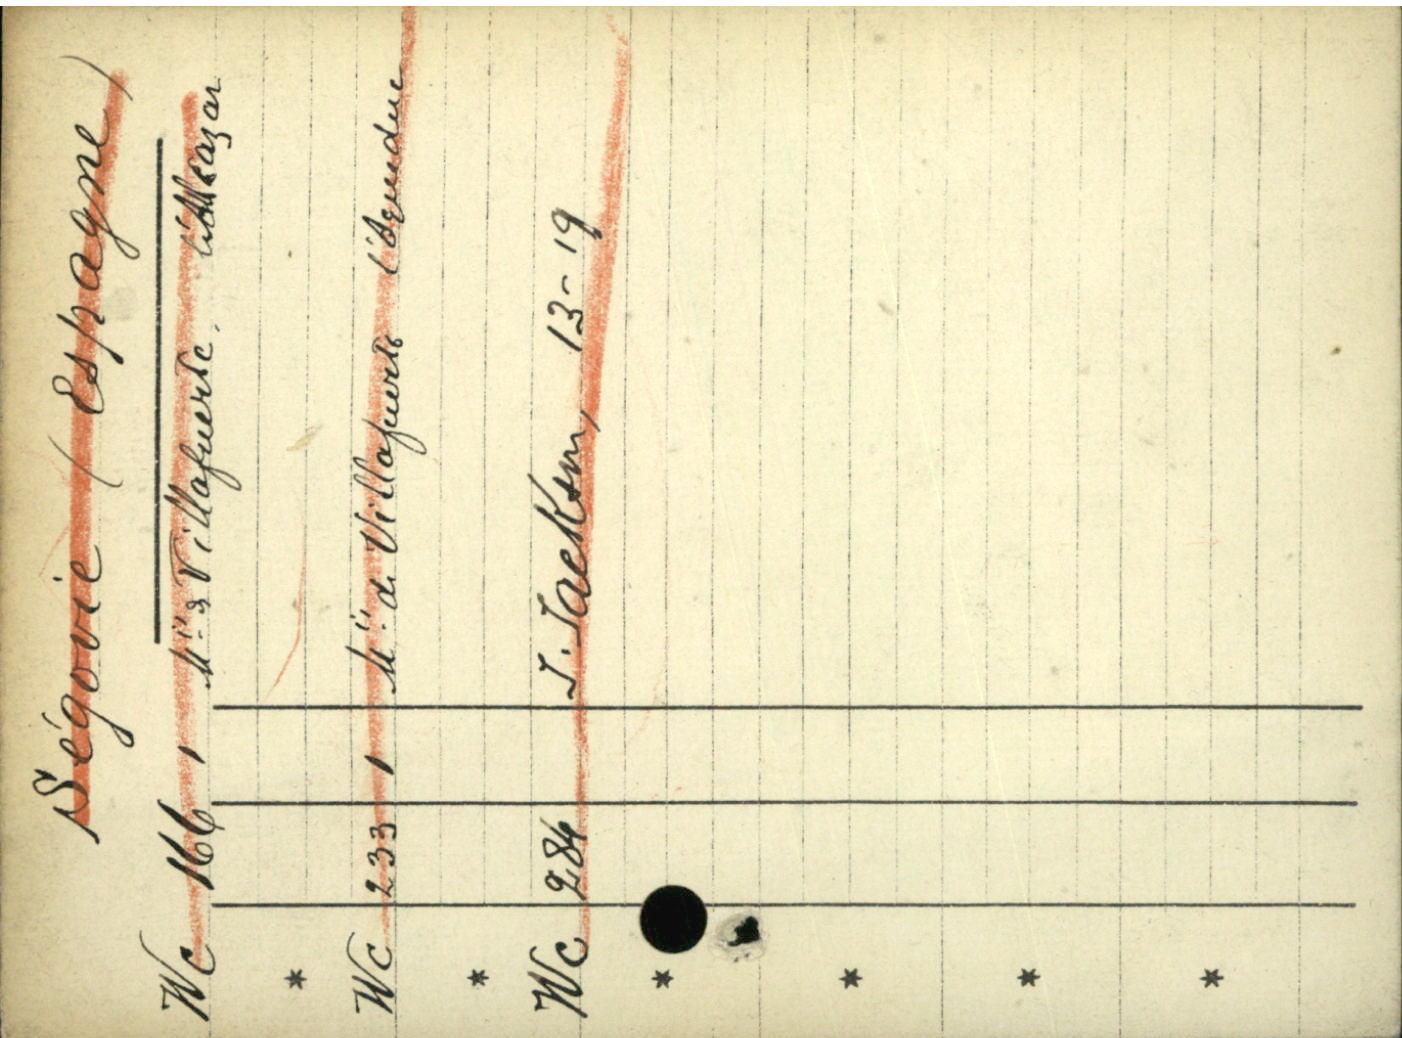 Ségovie (Espagne)
Wc 166 1 Mis de Villafuerte, l'Alcazar
Wc 233 1 Mis de Villafuerte l'Aqueduc
Wc 284 J. Jackson, 13-19